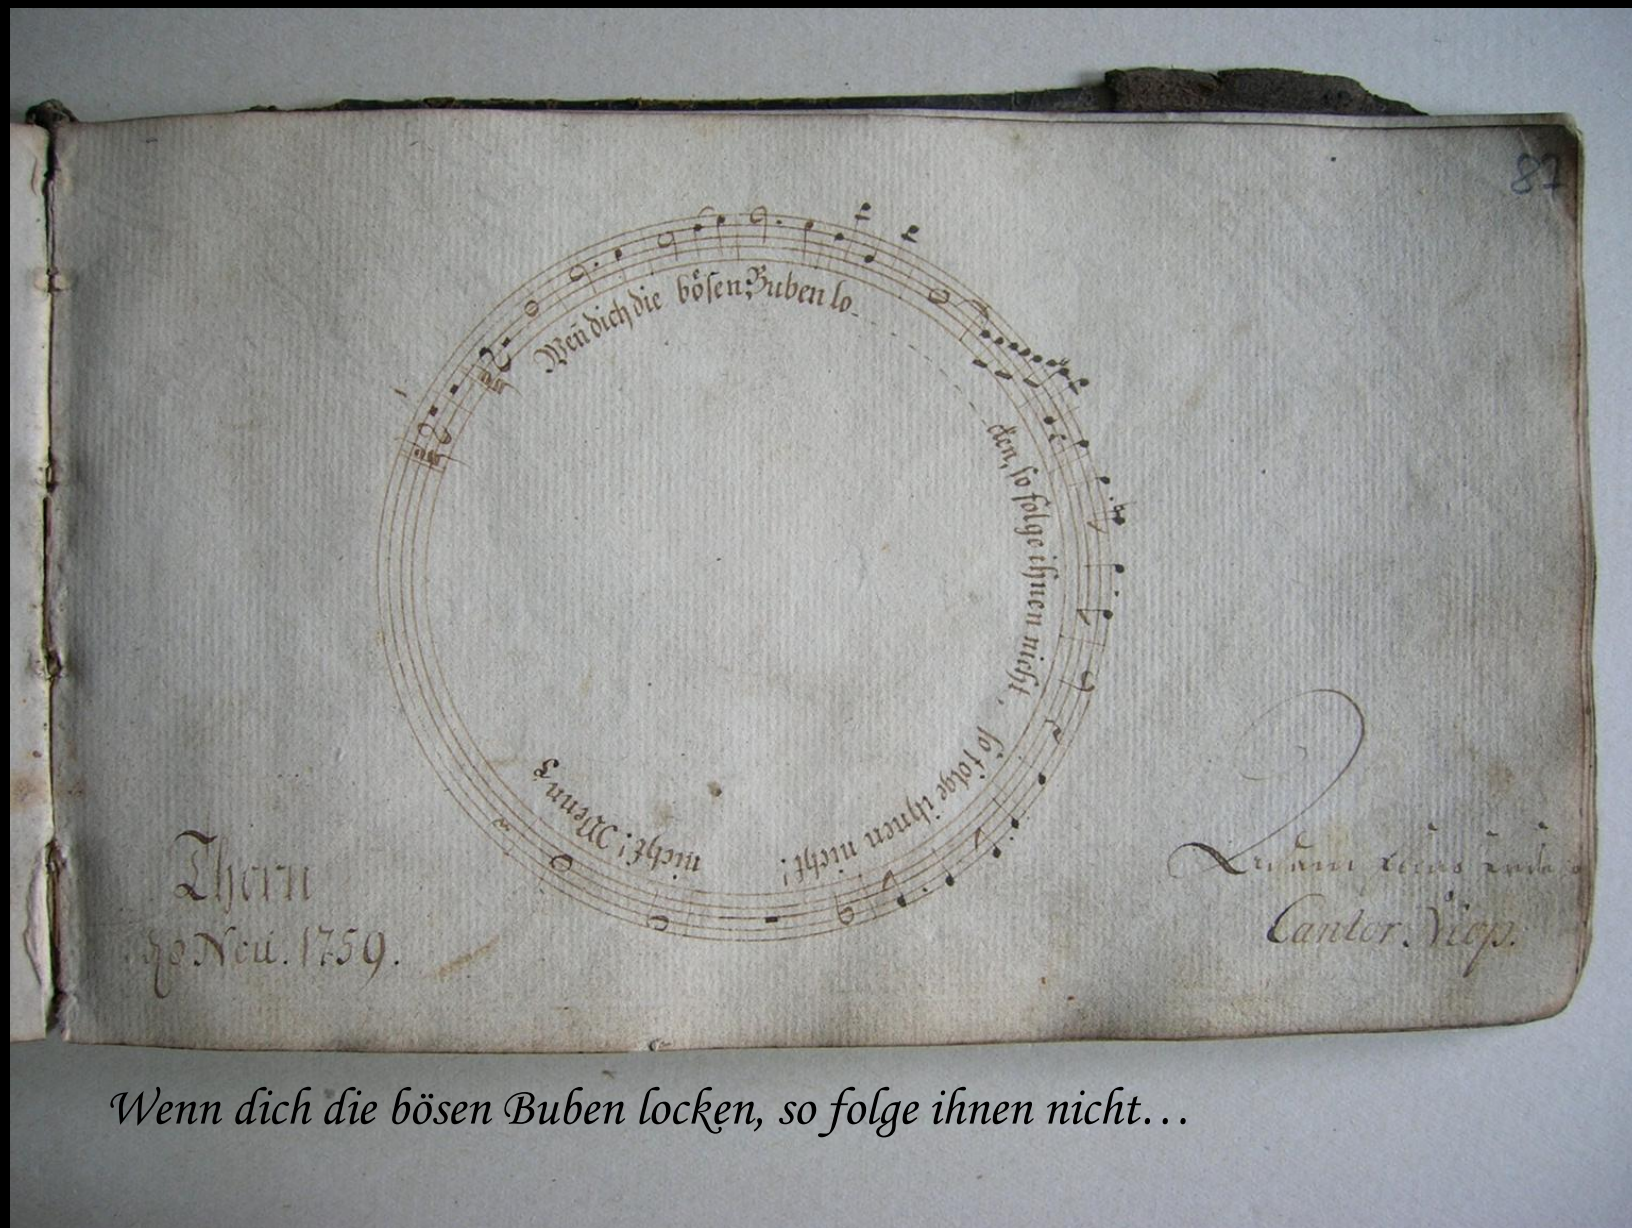 87
Weñ dich die bösen Buben lo- - - - cken, so folge ihnen nicht, so folge ihnen nicht! nicht! Wenn
Thorn
Nov. 1759.
Cantor
Wenn dich die bösen Buben locken, so folge ihnen nicht…